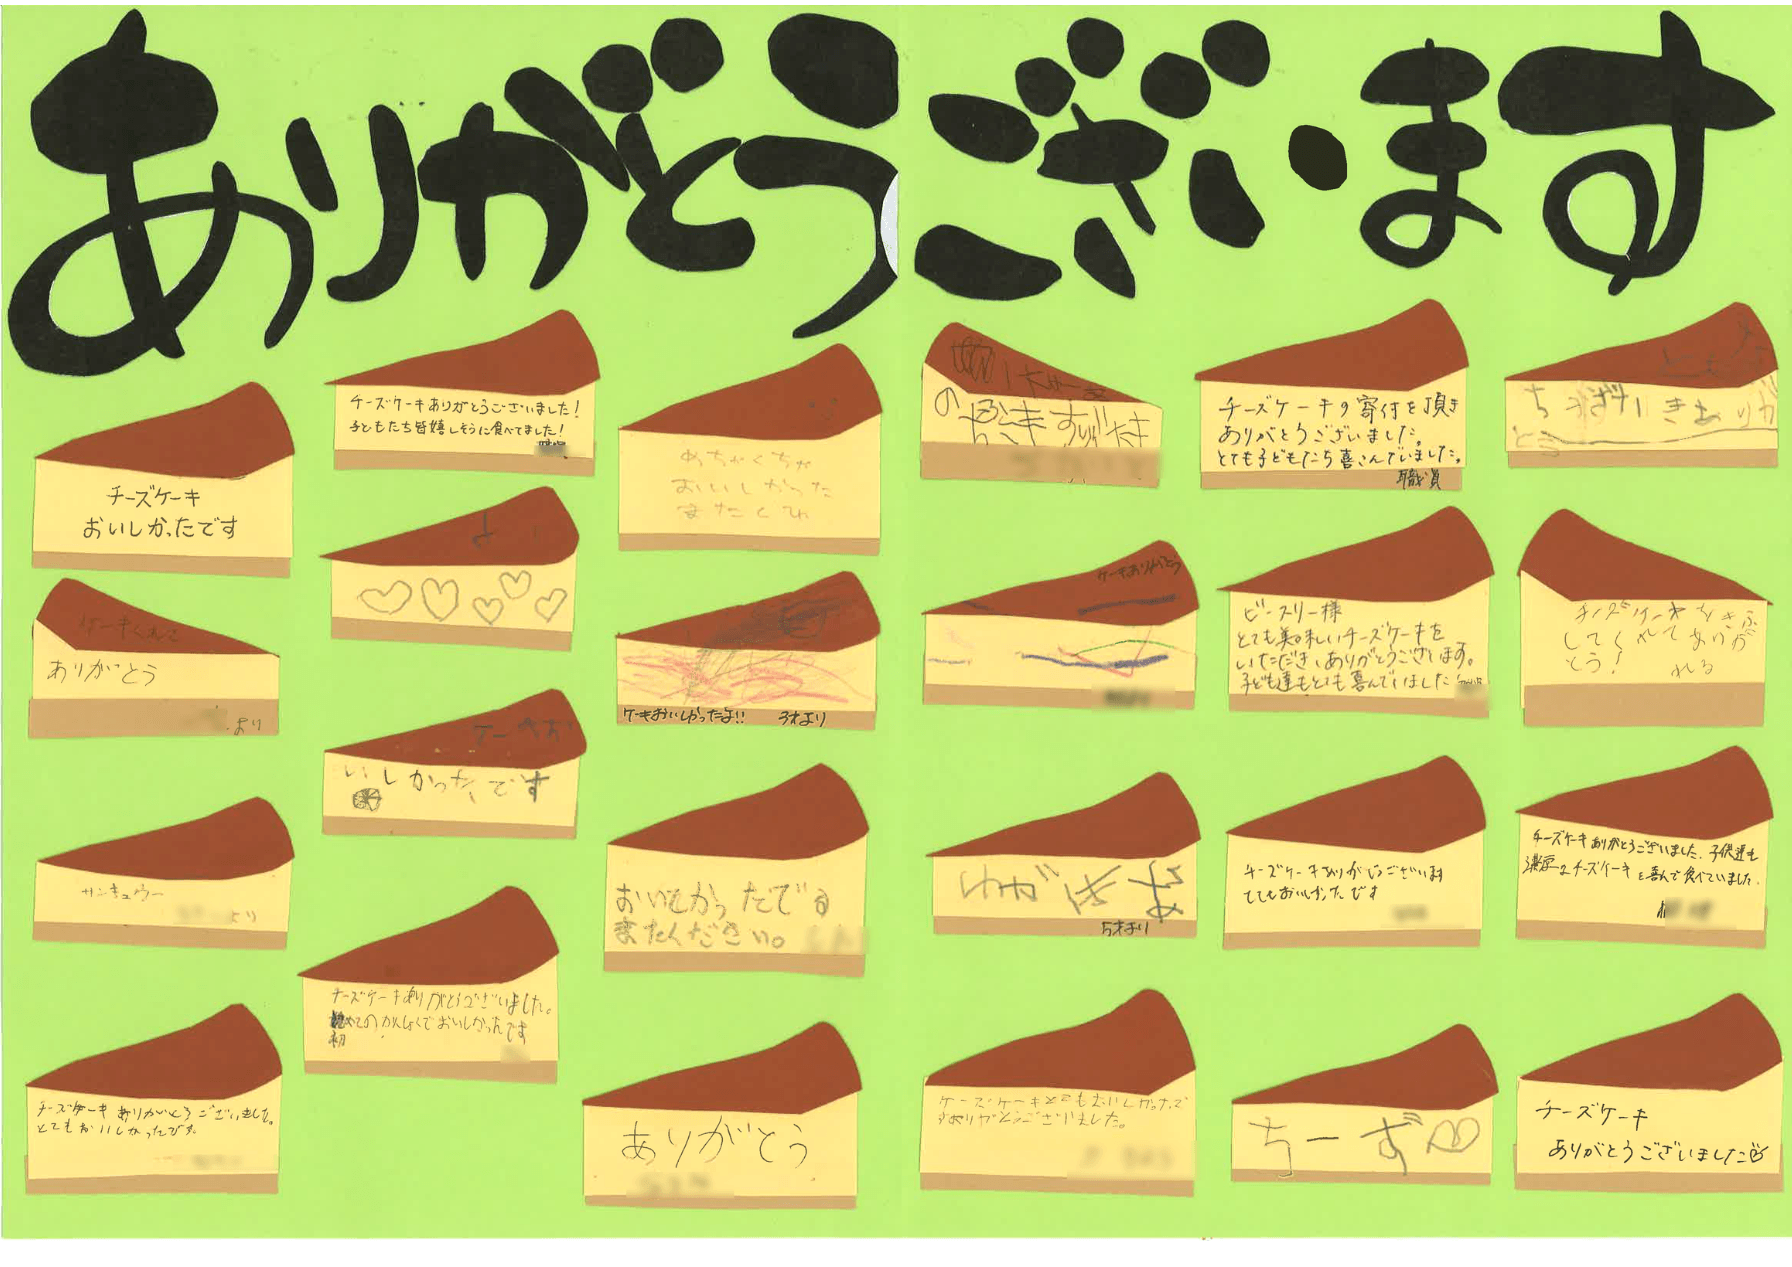 ありがとうございます
チーズケーキありがとうございました!
子どもたち皆嬉しそうに食べてました!
職員
めちゃくちゃ
おいしかった
またくれ
チーズケーキ
おいしかったです
ケーキくれて
ありがとう
より
ケーキおいしかったよ!! 3才より
ケーキお
いしかったです
サンキュウー
より
おいしかったです
またください。
チーズケーキありがとうございました。
めての よくておいしかったです
初
チーズケーキありがとうございました。
とてもおいしかったです。
ありがとう
すき
チーズケーキの寄付を頂き
ありがとうございました。
とても子どもたち喜こんでいました。
職員
ちーずけーきありが
とう
ケーキありがとう
ビースリー様
とても美味しいチーズケーキを
いただき、ありがとうございます。
子ども達もとても喜んでいました
チーズケーキをきふ
してくれてありが
とう!
れる
5才より
チーズケーキありがとうございます
とてもおいしかったです
チーズケーキありがとうございました。子供達も
濃厚なチーズケーキを喜んで食べていました。
チーズケーキとてもおいしかったで
すありがとうございました。
ちーず
チーズケーキ
ありがとうございました